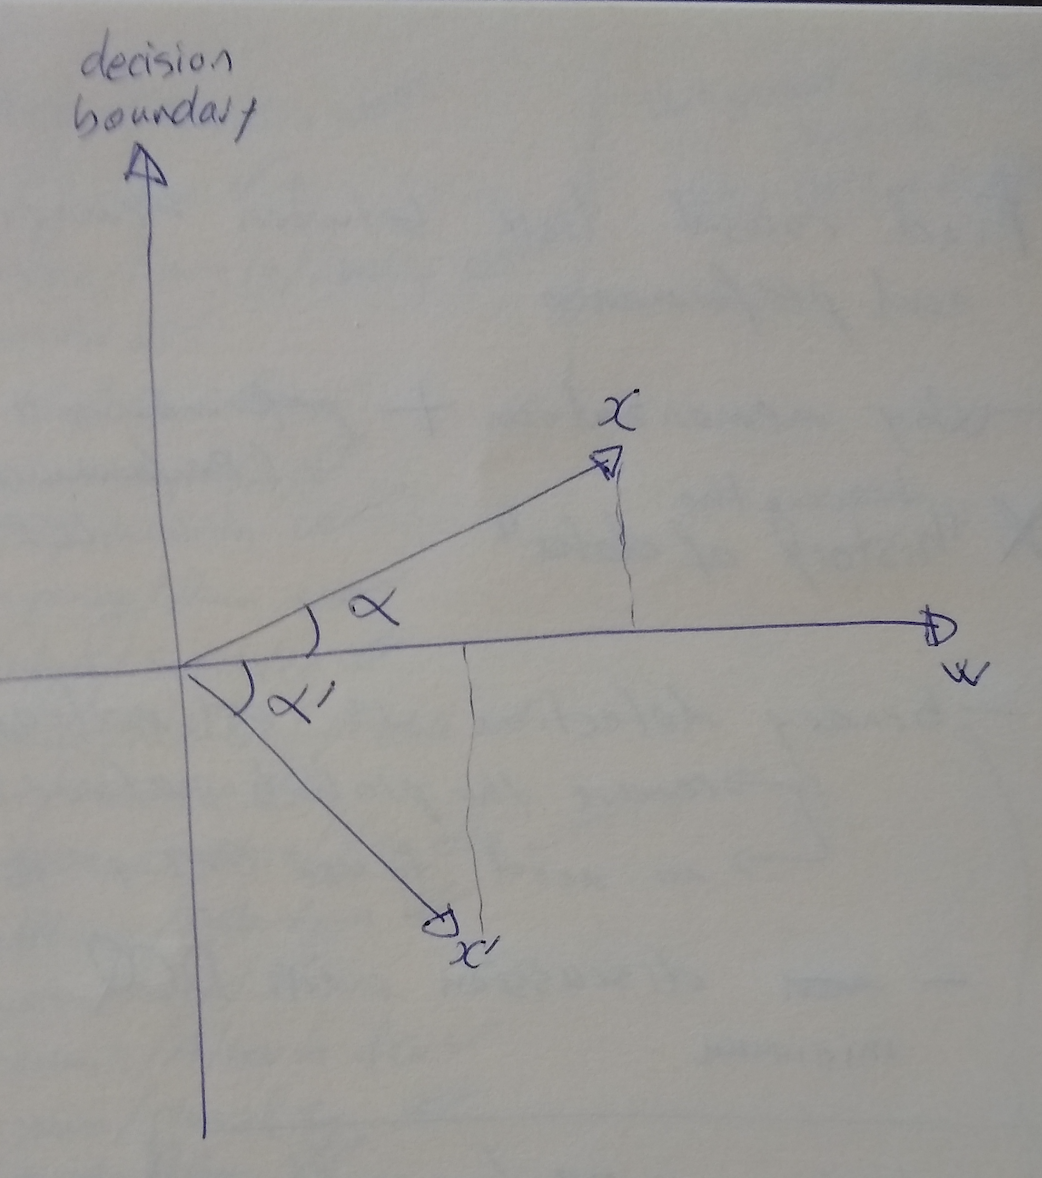 decision
boundary
x
α
w
α'
x'